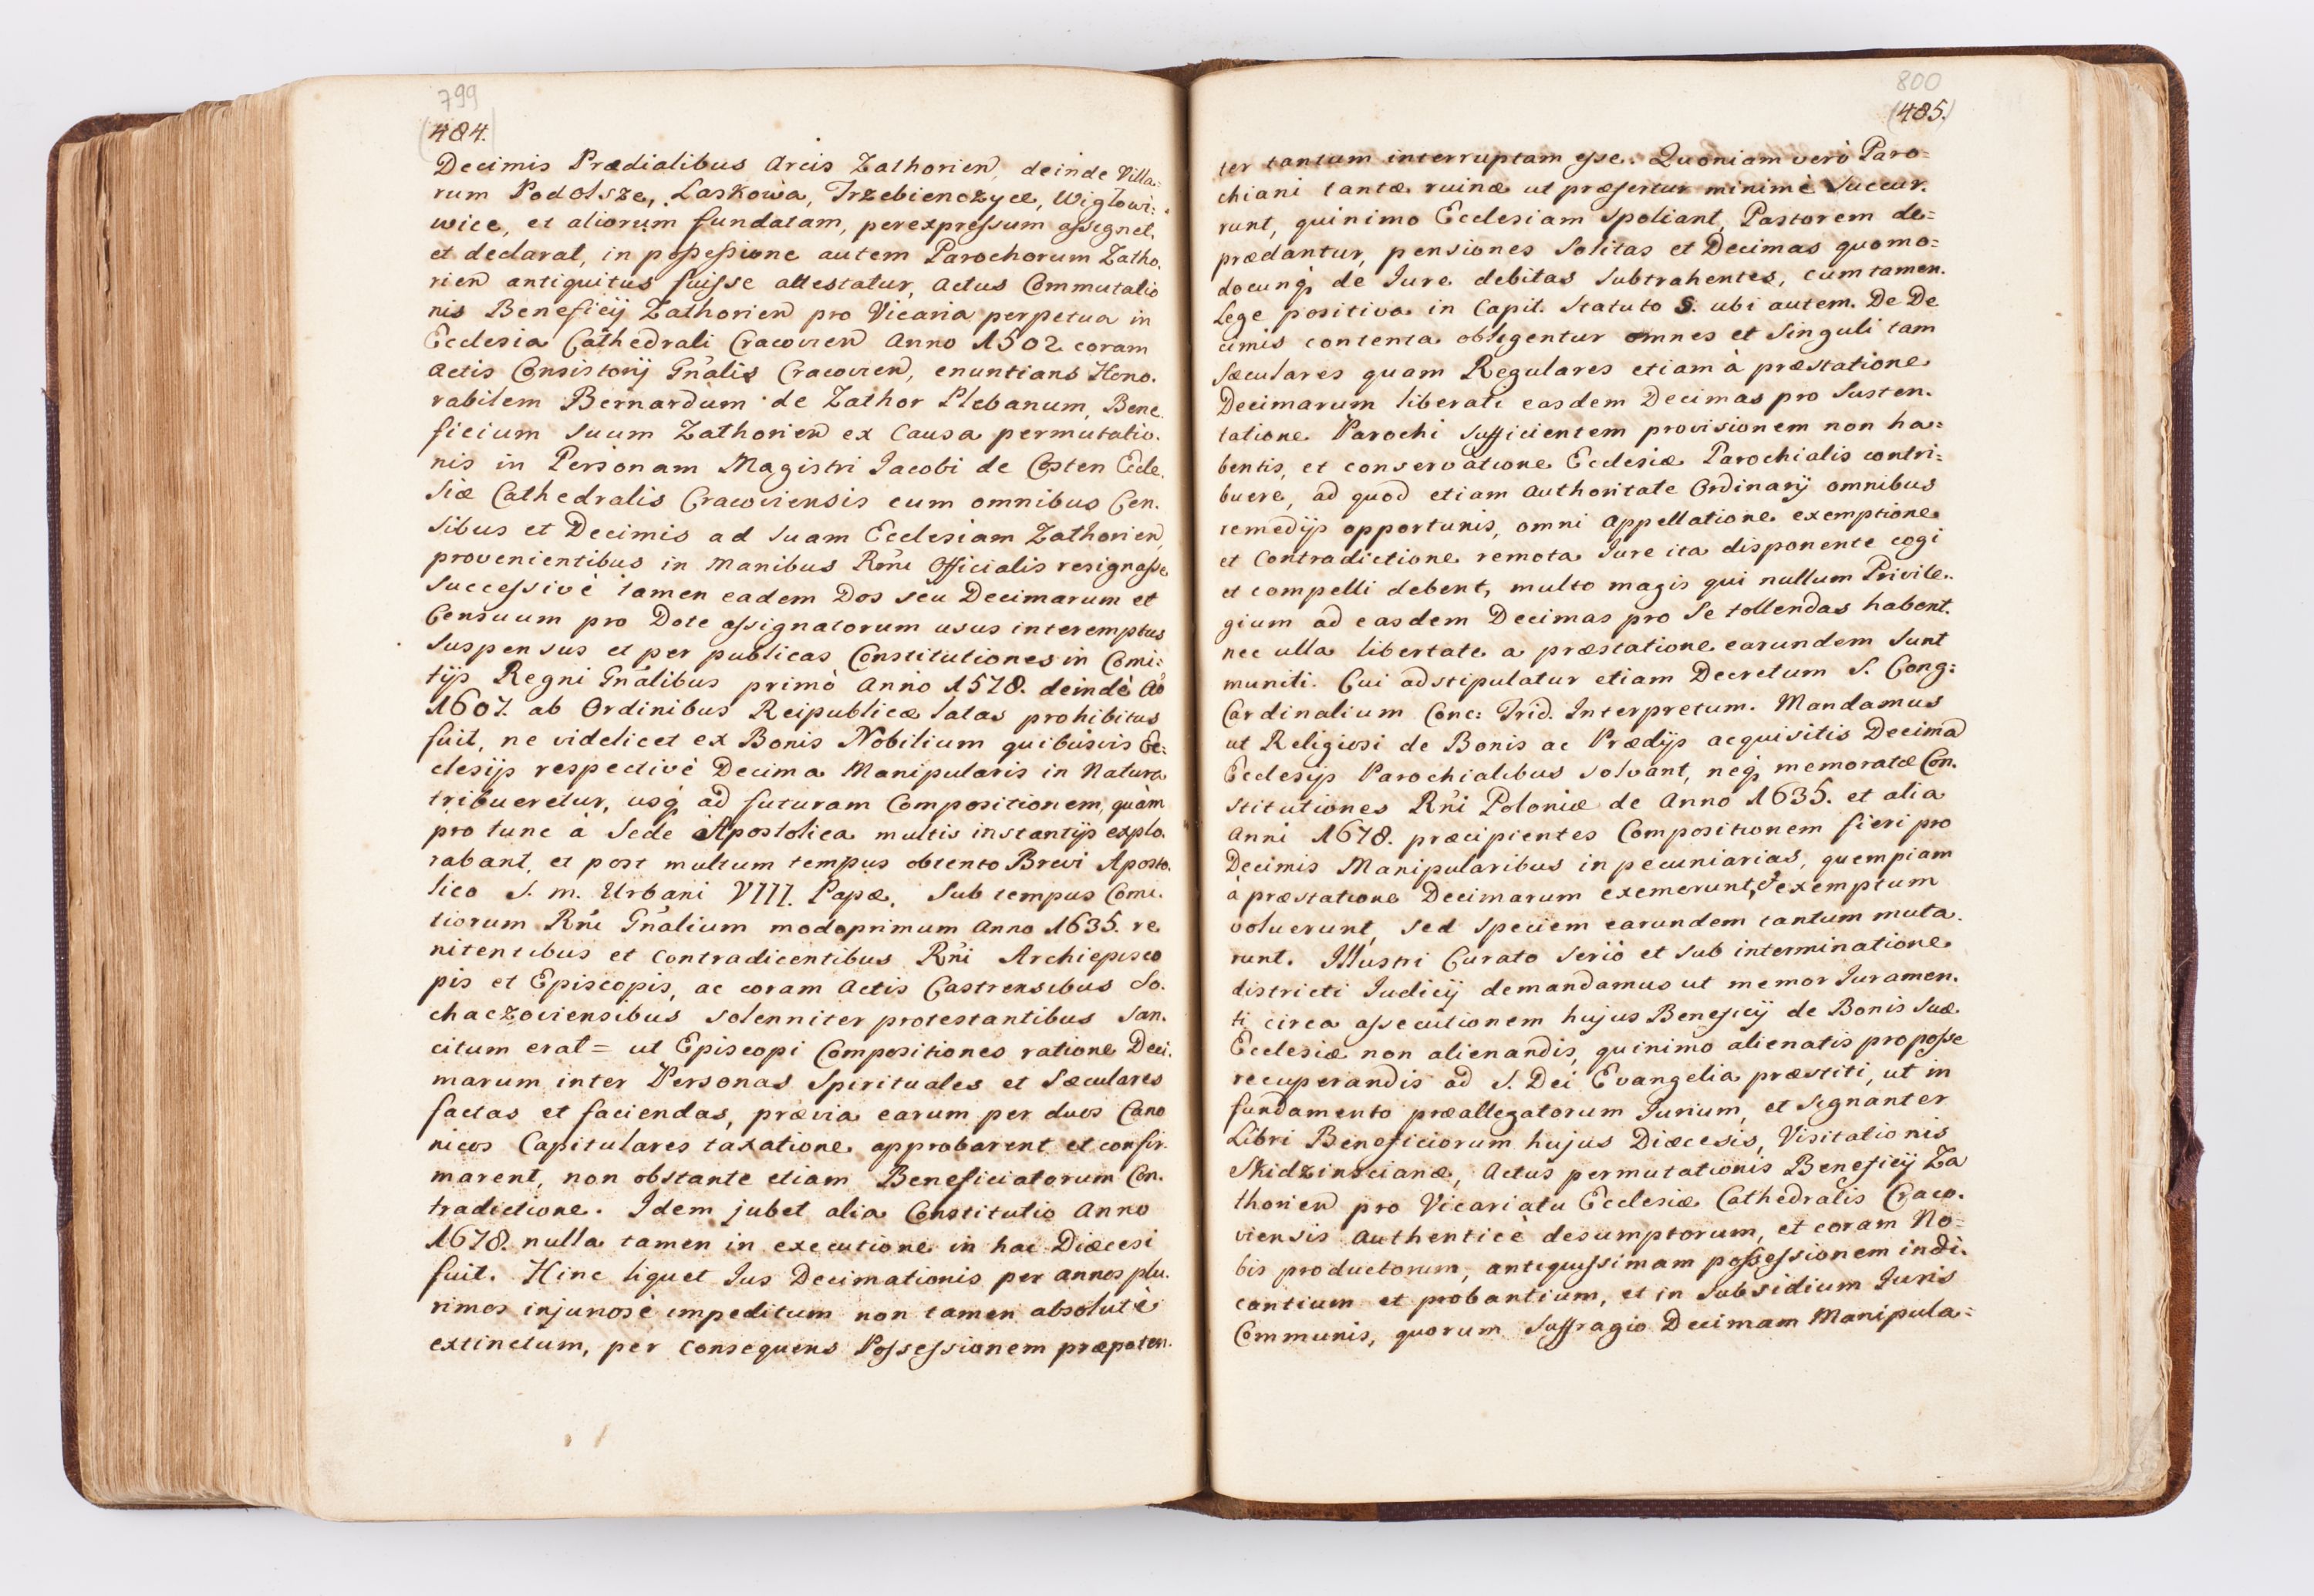 799
(484.)
Decimis Prædialibus Arcis Zathorien, deinde Villa:
rum Podolsze, Laskowa, Trzebienczyce, Wiglowi:
wice, et aliorum fundatam, perexpressum assignet,
et declarat, in possessione autem Parochorum Zatho.
rien antiquitus fuisse attestatur, Actus Commutatio
nis Beneficij Zathorien pro Vicaria perpetua in
Ecclesia Cathedrali Cracovien Anno 1502 coram
Actis Consistorij Gn̄alis Cracovien, enuntians Hono.
rabilem Bernardum de Zathor Plebanum, Bene.
ficium suum Zathorien ex Causa permutatio.
nis in Personam Magistri Jacobi de Costen Eccle.
siæ Cathedralis Cracoviensis cum omnibus Cen.
sibus et Decimis ad suam Ecclesiam Zathorien,
provenientibus in Manibus Rm̄i Officialis resignasse
Successivè tamen eadem Dos seu Decimarum et
Censuum pro Dote assignatorum usus interemptus
suspensus et per publicas Constitutiones in Comi:
tijs Regni Gn̄alibus primò Anno 1578. deindè Aō
1607. ab Ordinibus Reipublicæ latas prohibitus
fuit, ne videlicet ex Bonis Nobilium quibusvis Ec:
clesijs respectivè Decima Manipularis in Natura
tribueretur, usq̨ ad futuram Compositionem, quàm
pro tunc à Sede Apostolica multis instantijs explo.
rabant, et post multum tempus obtento Brevi Aposto.
lico S. m. Urbani VIII. Papæ, Sub tempus Comi.
tiorum Rn̄i Gn̄alium modoprimum Anno 1635. re
nitentibus et contradicentibus Rn̄i Archiepisco
pis et Episcopis, ac coram Actis Castrensibus So.
chaczoviensibus solenniter protestantibus san.
citum erat = ut Episcopi Compositiones ratione Deci.
marum inter Personas Spirituales et Sæculares
factas et faciendas, prævia earum per duos Cano
nicos Capitulares taxatione approbarent et confir.
marent, non obstante etiam Beneficiatorum Con.
tradictione. Idem jubet alia Constitutio Anno
1678. nulla tamen in executione in hac Diæcesi
fuit. Hinc liquet Jus Decimationis per annos plu.
rimos injuriosè impeditum non tamen absolutè
extinctum, per consequens Possessionem præpoten.
800
(485.)
ter tantum interruptam esse. Quoniam verò Paro=
chiani tantæ ruinæ ut præfertur minimè succur.
runt, quinimo Ecclesiam spoliant, Pastorem de=
prædantur, pensiones solitas et Decimas quomo=
documq̨ de Jure debitas subtrahentes, cum tamen.
Lege positiva in Capit. Statuto §. ubi autem. De De
cimis contenta obligentur omnes et singuli tam
Sæculares quam Regulares etiam à præstatione
Decimarum liberati easdem Decimas pro susten.
tatione Parochi sufficientem provisionem non ha=
bentis, et conservatione Ecclesiæ Parochialis contri=
buere, ad quod etiam Authoritate Ordinarij omnibus
remedijs opportunis, omni appellatione exemptione
et Contradictione remota Jure ita disponente cogi
et compelli debent, multo magis qui nullum Privile.
gium ad easdem Decimas pro se tollendas habent.
nec ulla libertate a præstatione earundem sunt
muniti. Cui adstipulatur etiam Decretum S. Cong:
Cardinalium Conc: Trid. Interpretum. Mandamus
ut Religiosi de Bonis ac Prædijs acquisitis Decima
Ecclesijs Parochialibus solvant, neq̨ memoratæ Con.
stitutiones Rn̄i Poloniæ de Anno 1635. et alia
Anni 1678. præcipientes Compositionem fieri pro
Decimis Manipularibus in pecuniarias, quempiam
à præstatione Decimarum exemerunt, et exemptum
voluerunt, sed speciem earundem tantum muta.
runt. Illustri Curato seriò et sub interminatione
districti Judicij demandamus ut memor Juramen.
ti circa assecutionem hujus Beneficij de Bonis suæ
Ecclesiæ non alienandis, quinimo alienatis proposse
recuperandis ad S. Dei Evangelia præstiti, ut in
fundamento præallegatorum Jurium, et signanter
Libri Beneficiorum hujus Diæcesis, Visitationis
Skidzinscianæ, Actus permutationis Beneficij Za
thorien pro Vicariatu Ecclesiæ Cathedralis Craco.
viensis Authenticè desumptorum, et coram No=
bis productorum, antiquissimam possessionem indi.
cantium et probantium, et in subsidium Juris
Communis, quorum suffragio Decimam Manipula=